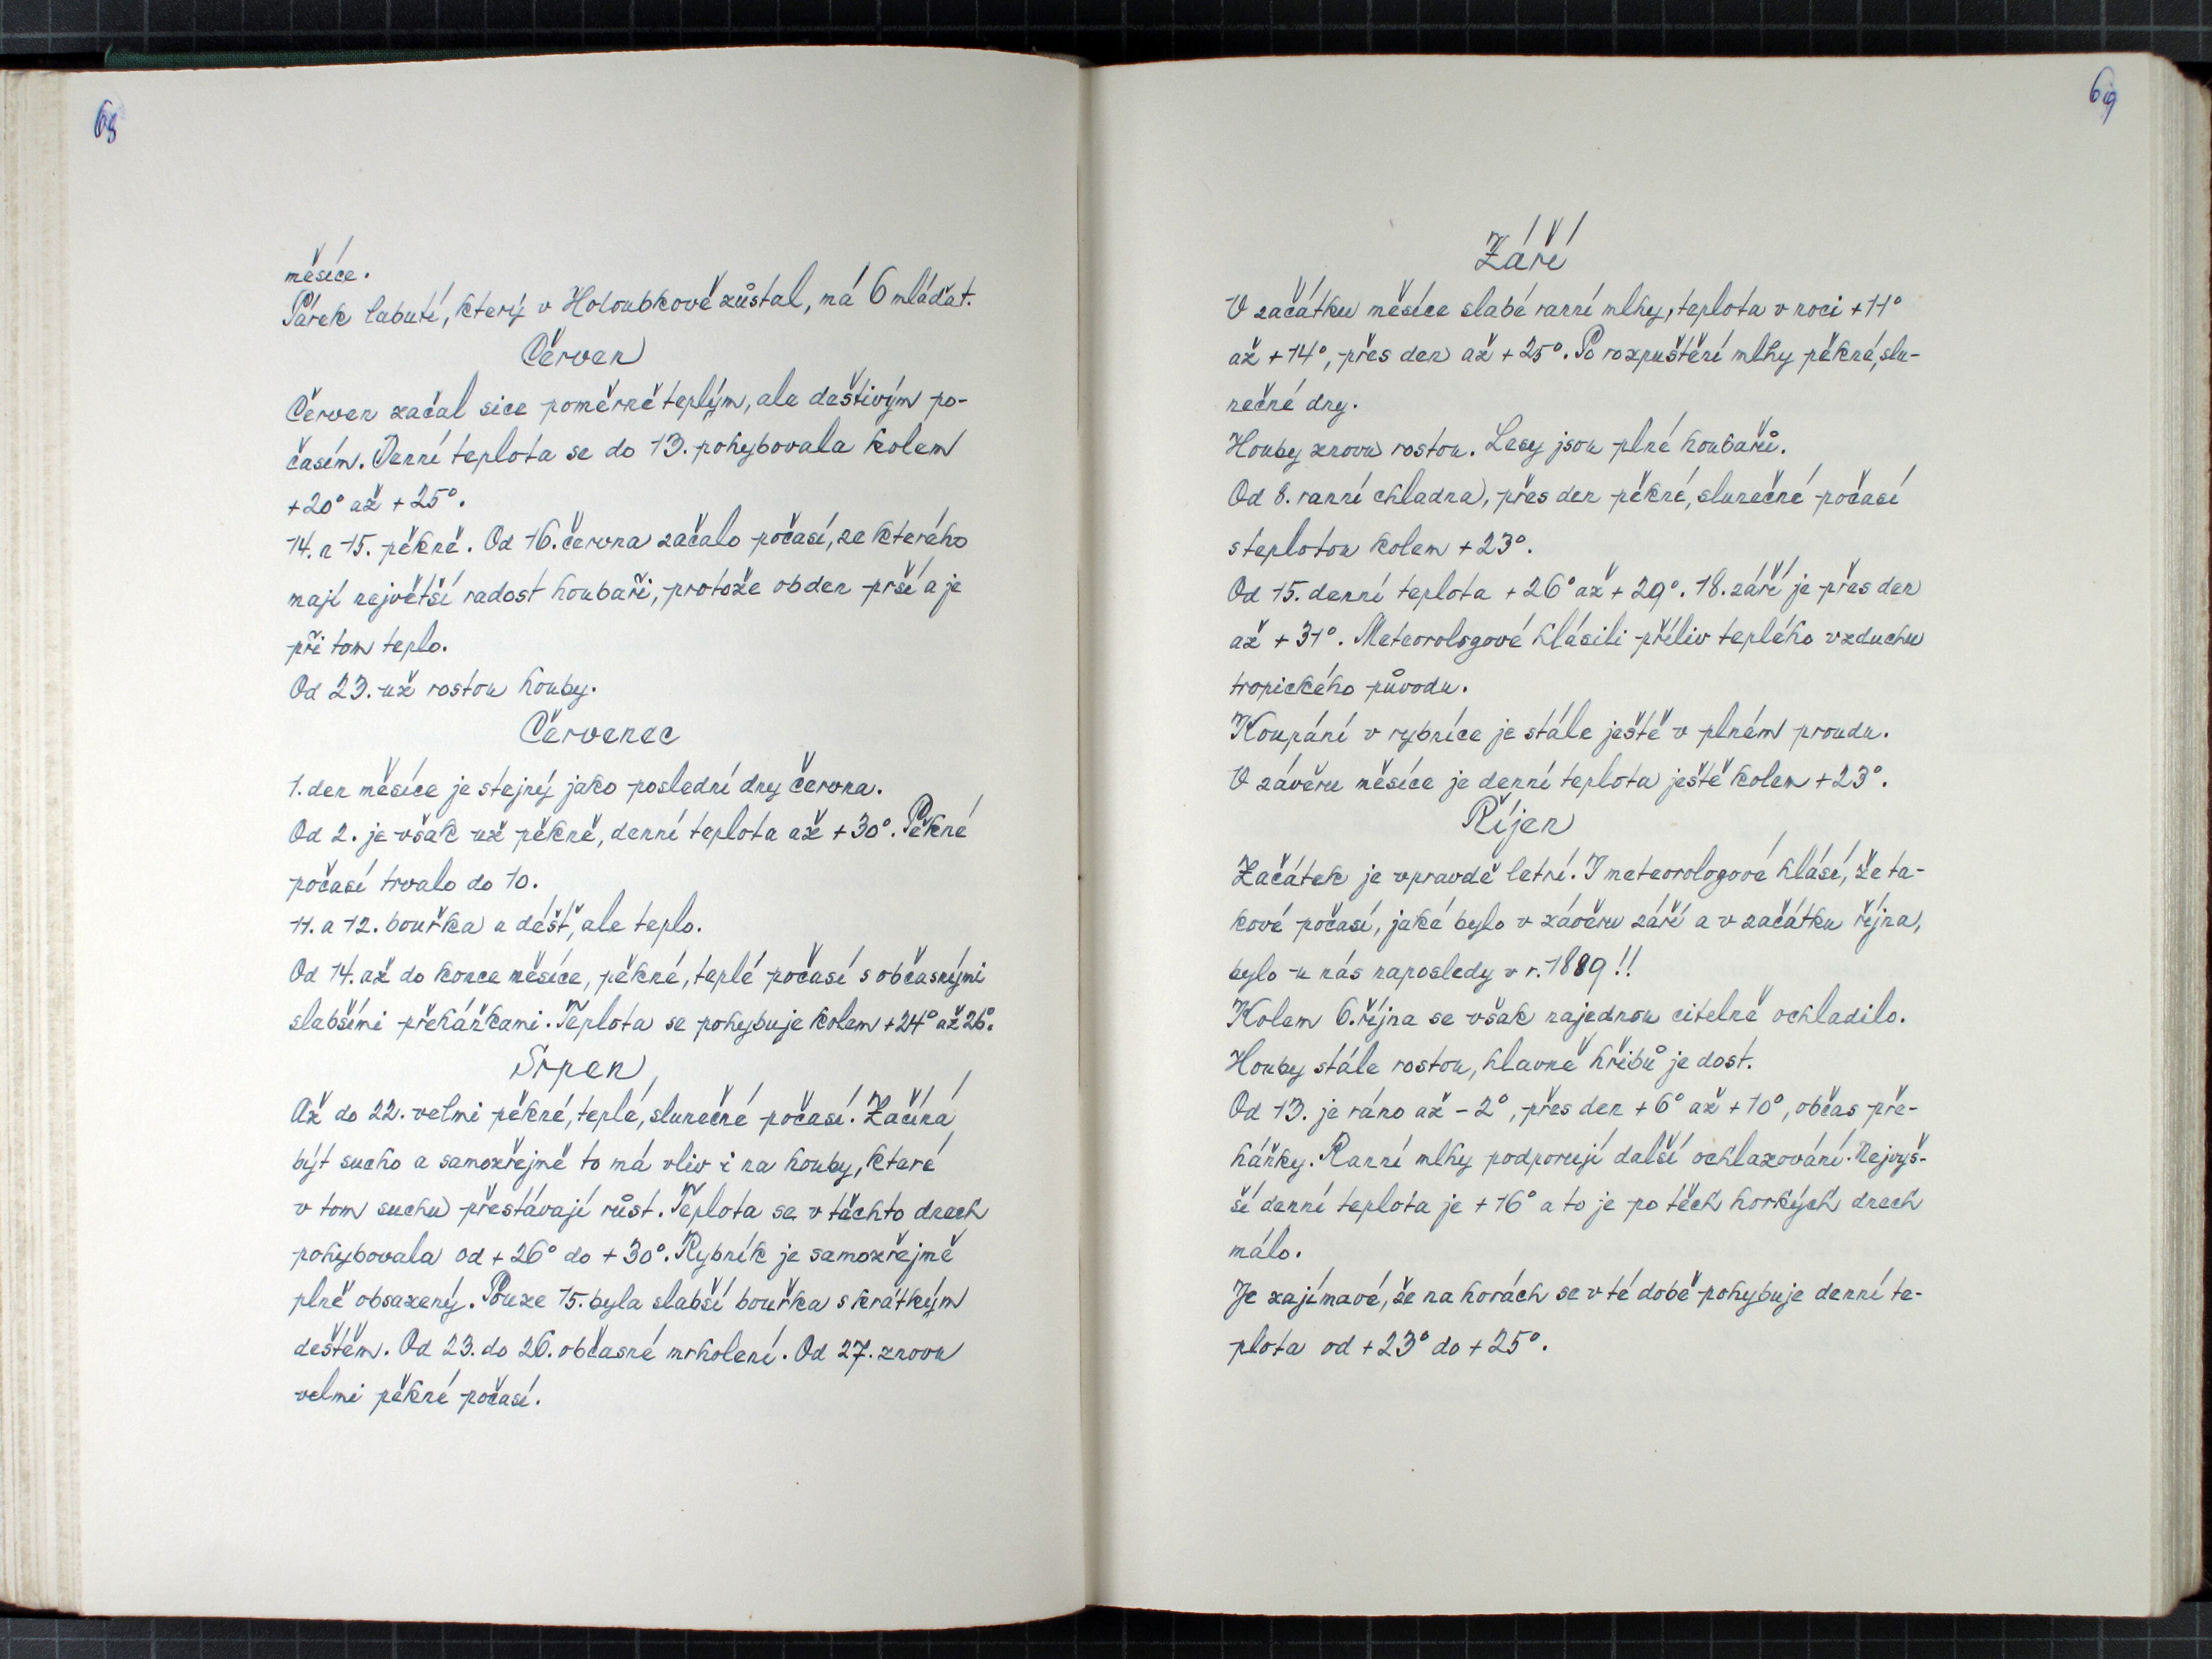 68
měsíce.
Párek labutí, který v Holoubkově zůstal, má 6 mláďat.
Červen
Červen začal sice poměrně teplým, ale deštivým po-
časím. Denní teplota se do 13. pohybovala kolem
+20° až +25°.
14. a 15. pěkně. Od 16. června začalo počasí, ze kterého
mají největší radost houbaři, protože obden prší a je
při tom teplo.
Od 23. už rostou houby.
Červenec
1. den měsíce je stejný jako poslední dny června.
Od 2. je však už pěkně, denní teplota až +30°. Pěkné
počasí trvalo do 10.
11. a 12. bouřka a déšť, ale teplo.
Od 14. až do konce měsíce, pěkné, teplé počasí s občasnými
slabšími přeháňkami. Teplota se pohybuje kolem +24° až 26°.
Srpen
Až do 22. velmi pěkné, teplé, slunečné počasí. Začíná
být sucho a samozřejmě to má vliv i na houby, které
v tom suchu přestávají růst. Teplota se v těchto dnech
pohybovala od +26° do +30°. Rybník je samozřejmě
plně obsazený. Pouze 15. byla slabší bouřka s krátkým
deštěm. Od 23. do 26. občasné mrholení. Od 27. znovu
velmi pěkné počasí.
69
Září
V začátku měsíce slabé ranní mlhy, teplota v noci +11°
až +14°, přes den až +25°. Po rozpuštění mlhy pěkné, slu-
nečné dny.
Houby znovu rostou. Lesy jsou plné houbařů.
Od 8. ranní chladna, přes den pěkné, slunečné počasí
s teplotou kolem +23°.
Od 15. denní teplota +26° až +29°. 18. září je přes den
až +31°. Meteorologové hlásili příliv teplého vzduchu
tropického původu.
Koupání v rybníce je stále ještě v plném proudu.
V závěru měsíce je denní teplota ještě kolem +23°.
Říjen
Začátek je vpravdě letní. I meteorologové hlásí, že ta-
kové počasí, jaké bylo v závěru září a v začátku října,
bylo u nás naposledy v r. 1889!!
Kolem 6. října se však najednou citelně ochladilo.
Houby stále rostou, hlavně hřibů je dost.
Od 13. je ráno až -2°, přes den +6° až +10°, občas pře-
háňky. Ranní mlhy podporují další ochlazování. Nejvyš-
ší denní teplota je +16° a to je po těch horkých dnech
málo.
Je zajímavé, že na horách se v té době pohybuje denní te-
plota od +23° do +25°.